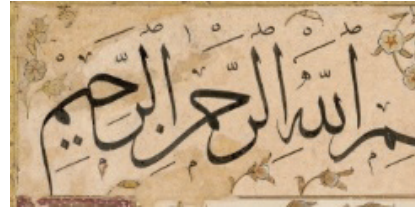 اللّهِ الرَّحْمنِ الرَّحِيمِ